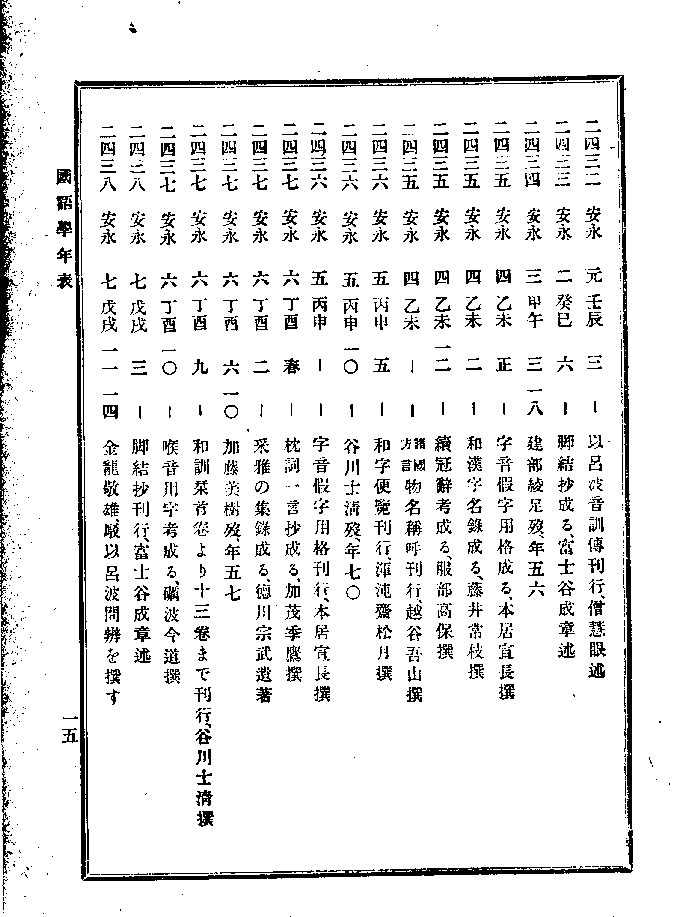 二四三二 安永 元 壬辰 三 ー 以呂波音訓傳刊行、僧慧眼述
二四三三 安永 二 癸巳 六 ー 脚結抄成る、富士谷成章述
二四三四 安永 三 甲午 三 一八 建部綾足歿、年五六
二四三五 安永 四 乙未 正 ー 字音假字用格成る、本居宣長撰
二四三五 安永 四 乙未 二 ー 和漢字名錄成る、藤井常枝撰
二四三五 安永 四 乙未 一二 ー 續冠辭考成る、服部高保撰
二四三五 安永 四 乙未 ー ー 諸國方言物名稱呼刊行、越谷吾山撰
二四三六 安永 五 丙申 五 ー 和字便覽刊行、渾沌齋松月撰
二四三六 安永 五 丙申 一〇 ー 谷川士淸歿、年七〇
二四三六 安永 五 丙申 ー ー 字音假字用格刊行、本居宣長撰
二四三七 安永 六 丁酉 春 ー 枕詞一言抄成る、加茂季鷹撰
二四三七 安永 六 丁酉 二 ー 采雅の集錄成る、德川宗武遺著
二四三七 安永 六 丁酉 六 一〇 加藤美樹歿、年五七
二四三七 安永 六 丁酉 九 ー 和訓栞首卷より十三卷まで刊行、谷川士淸撰
二四三七 安永 六 丁酉 一〇 ー 喉音用字考成る、礪波今道撰
二四三八 安永 七 戊戌 三 ー 脚結抄刊行、富士谷成章述
二四三八 安永 七 戊戌 一一 一四 金龍敬雄、駁以呂波問辨を撰す
國語學年表
一五